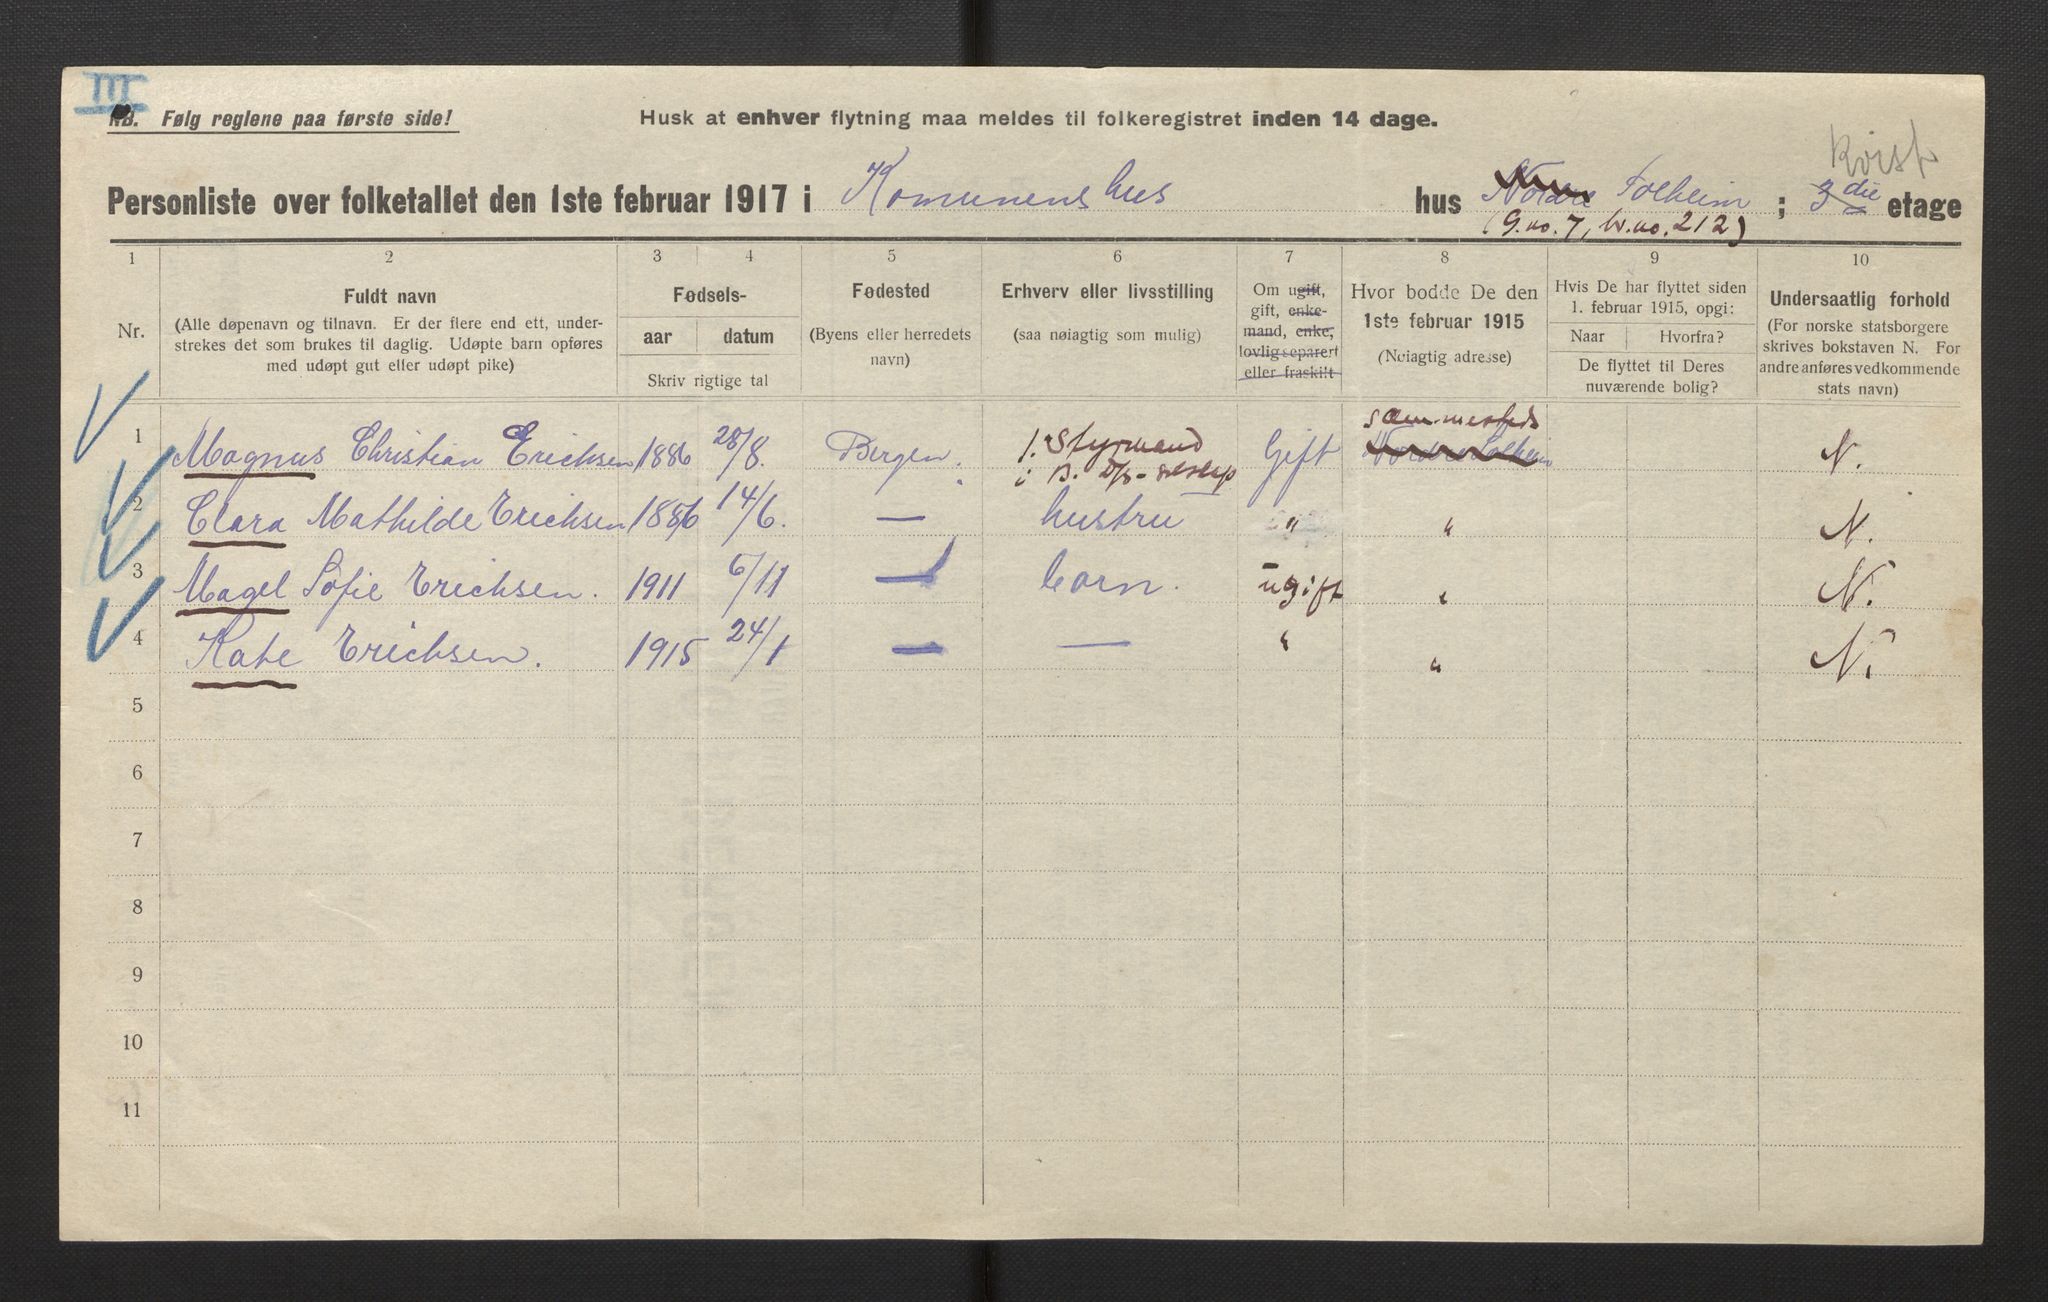 III
NB. Følg reglene paa første side!
Husk at enhver flytning maa meldes til folkeregistret inden 14 dage.
Kvist
Personliste over folketallet den 1ste februar 1917 i Komunens hus hus Nordre Solheim ; 3die etage
(G.no. 7, br.no. 212)
1 2 3 4 5 6 7 8 9 10
Nr.
Fuldt navn
(Alle døpenavn og tilnavn. Er der flere end ett, under-
strekes det som brukes til daglig. Udøpte barn opføres
med udøpt gut eller udøpt pike)
Fødsels-
aar datum
Skriv rigtige tal
Fødested
(Byens eller herredets
navn)
Erhverv eller livsstilling
(saa nøiagtig som mulig)
Om ugift,
gift, enke-
mand, enke,
lovlig separert
eller fraskilt
Hvor bodde De den
1ste februar 1915
(Nøiagtig adresse)
Hvis De har flyttet siden
1. februar 1915, opgi:
Naar Hvorfra?
De flyttet til Deres
nuværende bolig?
Undersaatlig forhold
(For norske statsborgere
skrives bokstaven N. For
andre anføres vedkommende
stats navn)
sammesteds
1 Magnus Christian Erichsen 1886 28/8. Bergen. 1. Styrmand Gift Nordre Solheim N.
i B. D/s-selskap
2 Clara Mathilde Erichsen 1886 14/6. — hustru " " N.
3 Magel Sofie Erichsen. 1911 6/11 — barn. ugift " N.
4 Kate Erichsen. 1915 24/1 — — " " N.
5
6
7
8
9
10
11